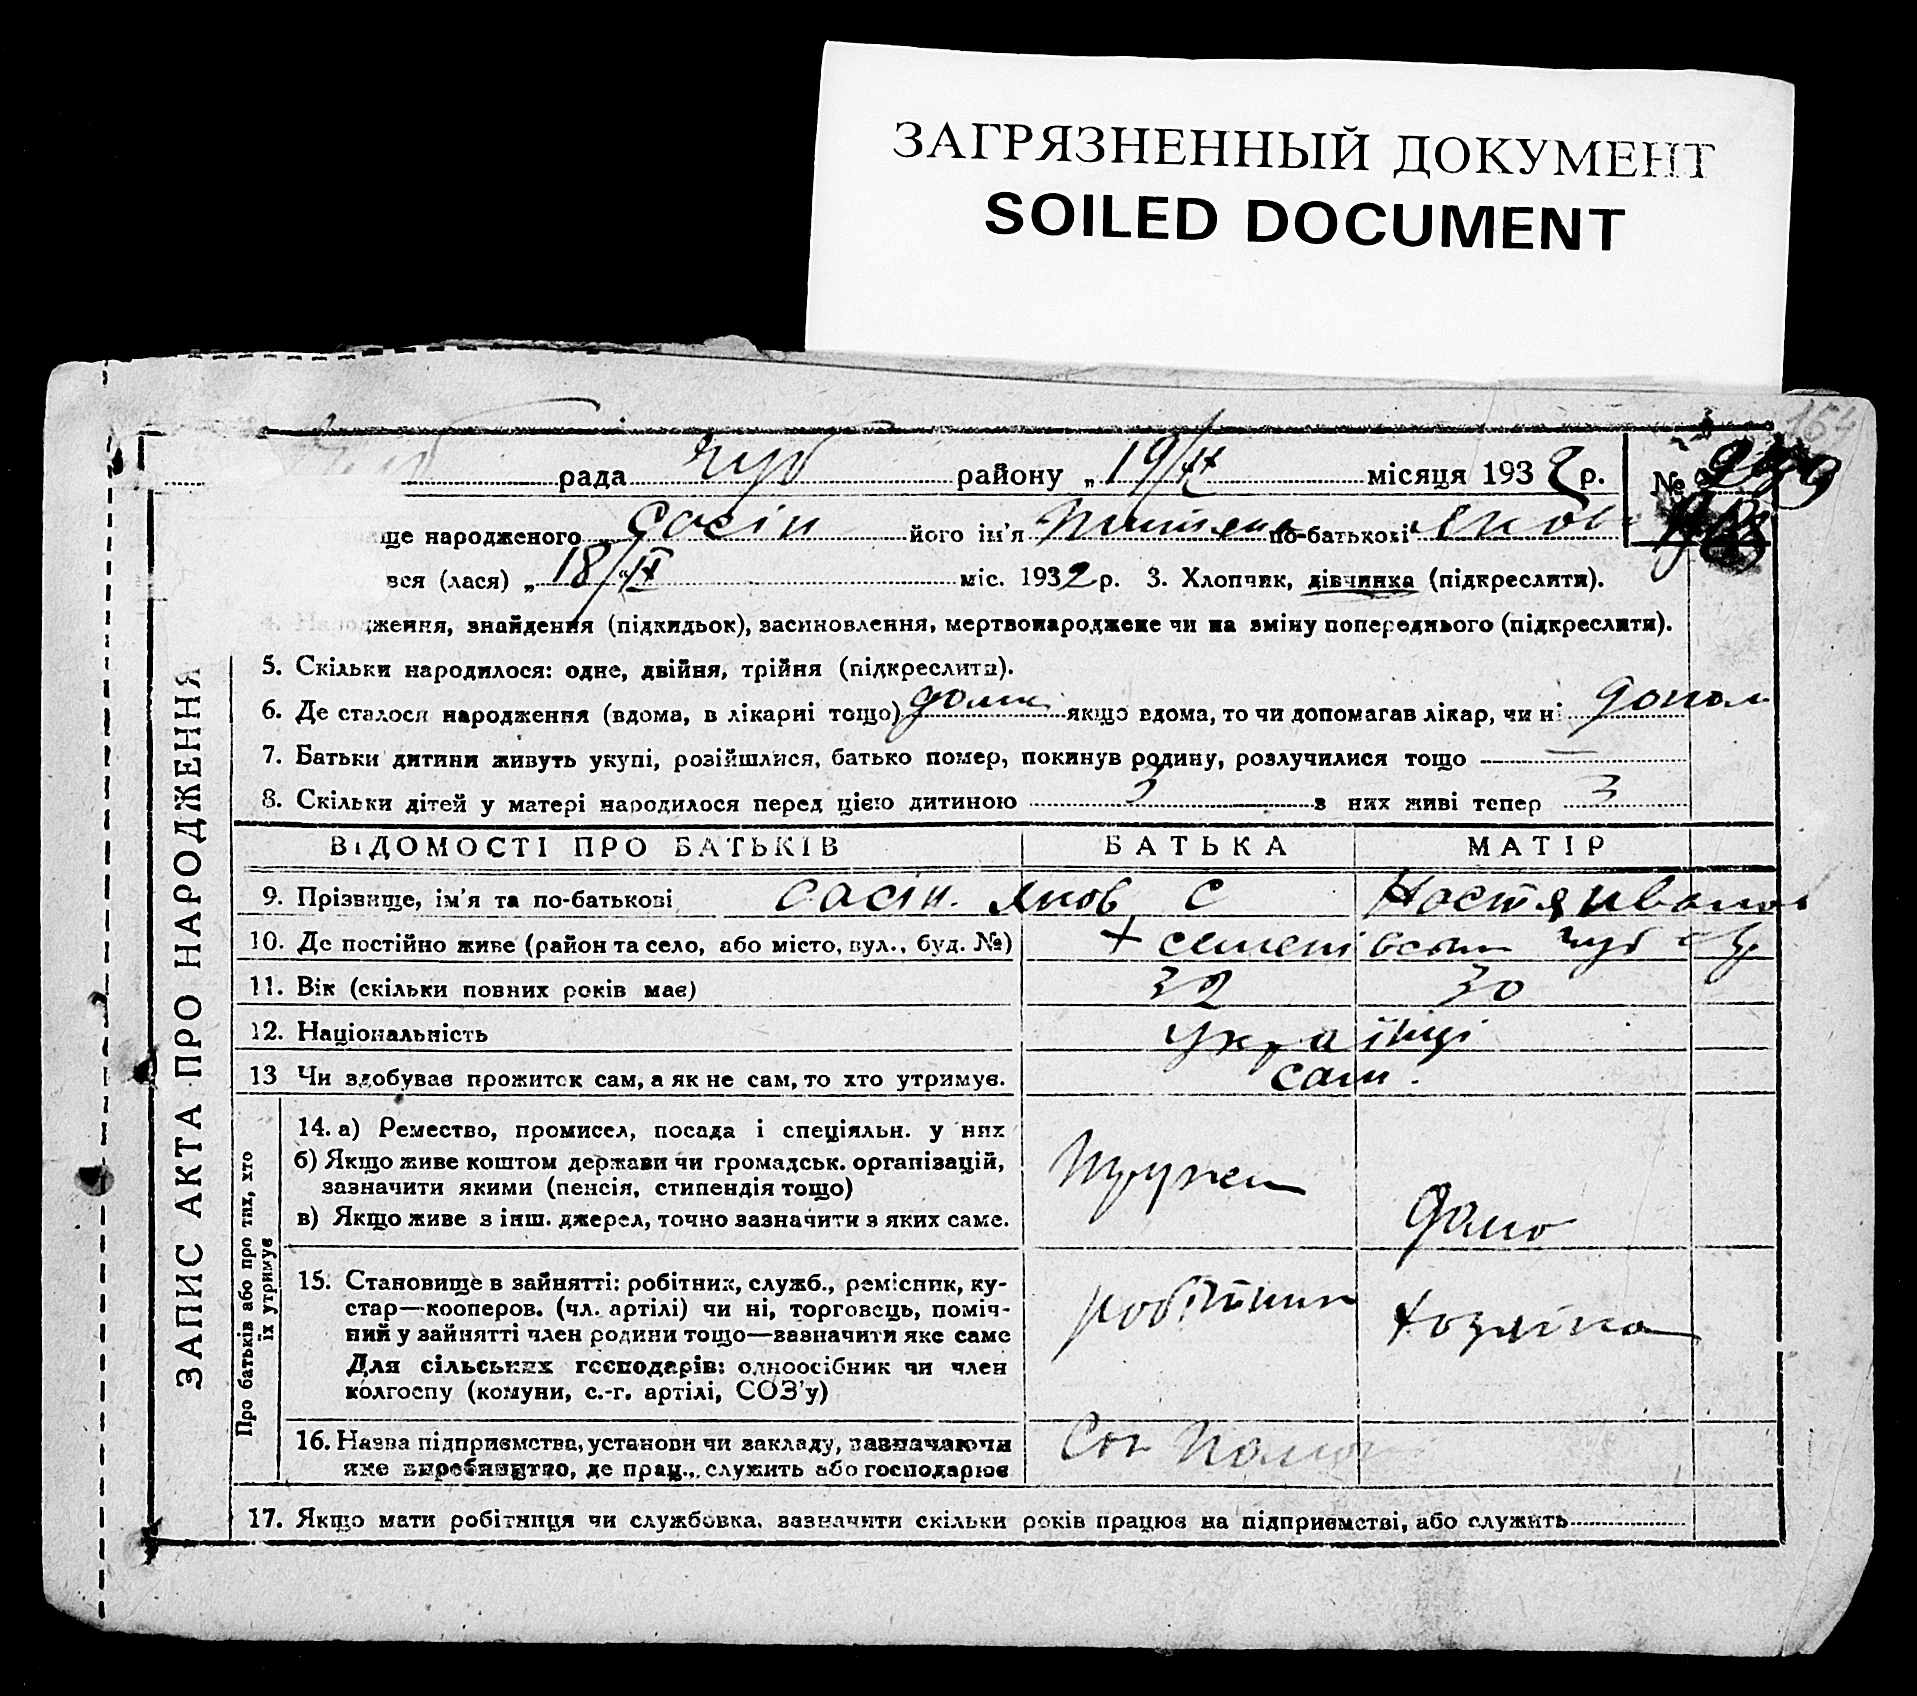 ЗАГРЯЗНЕННЫЙ ДОКУМЕНТ
SOILED DOCUMENT
164
рада Чуб району „19/IX місяця 1932 р. №
ще народженого Сасін його ім'я по-батькові Яков
вся (лася) „18/IX міс. 1932 р. 3. Хлопчик, дівчинка (підкреслити).
дження, знайдення (підкидьок), засиновлення, мертвонароджене чи на зміну попереднього (підкреслити).
5. Скільки народилося: одне, двійня, трійня (підкреслити).
6. Де сталося народження (вдома, в лікарні тощо) дома якщо вдома, то чи допомагав лікар, чи ні допом
7. Батьки дитини живуть укупі, розійшлися, батько помер, покинув родину, розлучилися тощо —
8. Скільки дітей у матері народилося перед цією дитиною 3 з них живі тепер 3
ЗАПИС АКТА ПРО НАРОДЖЕННЯ
ВІДОМОСТІ ПРО БАТЬКІВ БАТЬКА МАТІР
9. Прізвище, ім'я та по-батькові Сасін. Яков С Настя Иванов
10. Де постійно живе (район та село, або місто, вул., буд. №) х семенівськи чуб
11. Вік (скільки повних років має) 32 30
12. Національність Українці
13 Чи здобуває прожиток сам, а як не сам, то хто утримує. сам.
Про батьків або про тих, хто
їх утримує
14. а) Ремество, промисел, посада і спеціяльн. у них
б) Якщо живе коштом держави чи громадськ. організацій,
зазначити якими (пенсія, стипендія тощо)
в) Якщо живе з інш. джерел, точно зазначити з яких саме.
15. Становище в зайнятті: робітник, служб., ремісник, ку-
стар—кооперов. (чл. артілі) чи ні, торговець, поміч-
ний у зайнятті член родини тощо—зазначити яке саме
Для сільських господарів: одноосібник чи член
колгоспу (комуни, с.-г. артілі, СОЗ'у)
робітник хозяйка
16. Назва підприємства, установи чи закладу, зазначаючи
яке виробництво, де прац., служить або господарює
17. Якщо мати робітниця чи службовка, зазначити скільки років працює на підприємстві, або служить